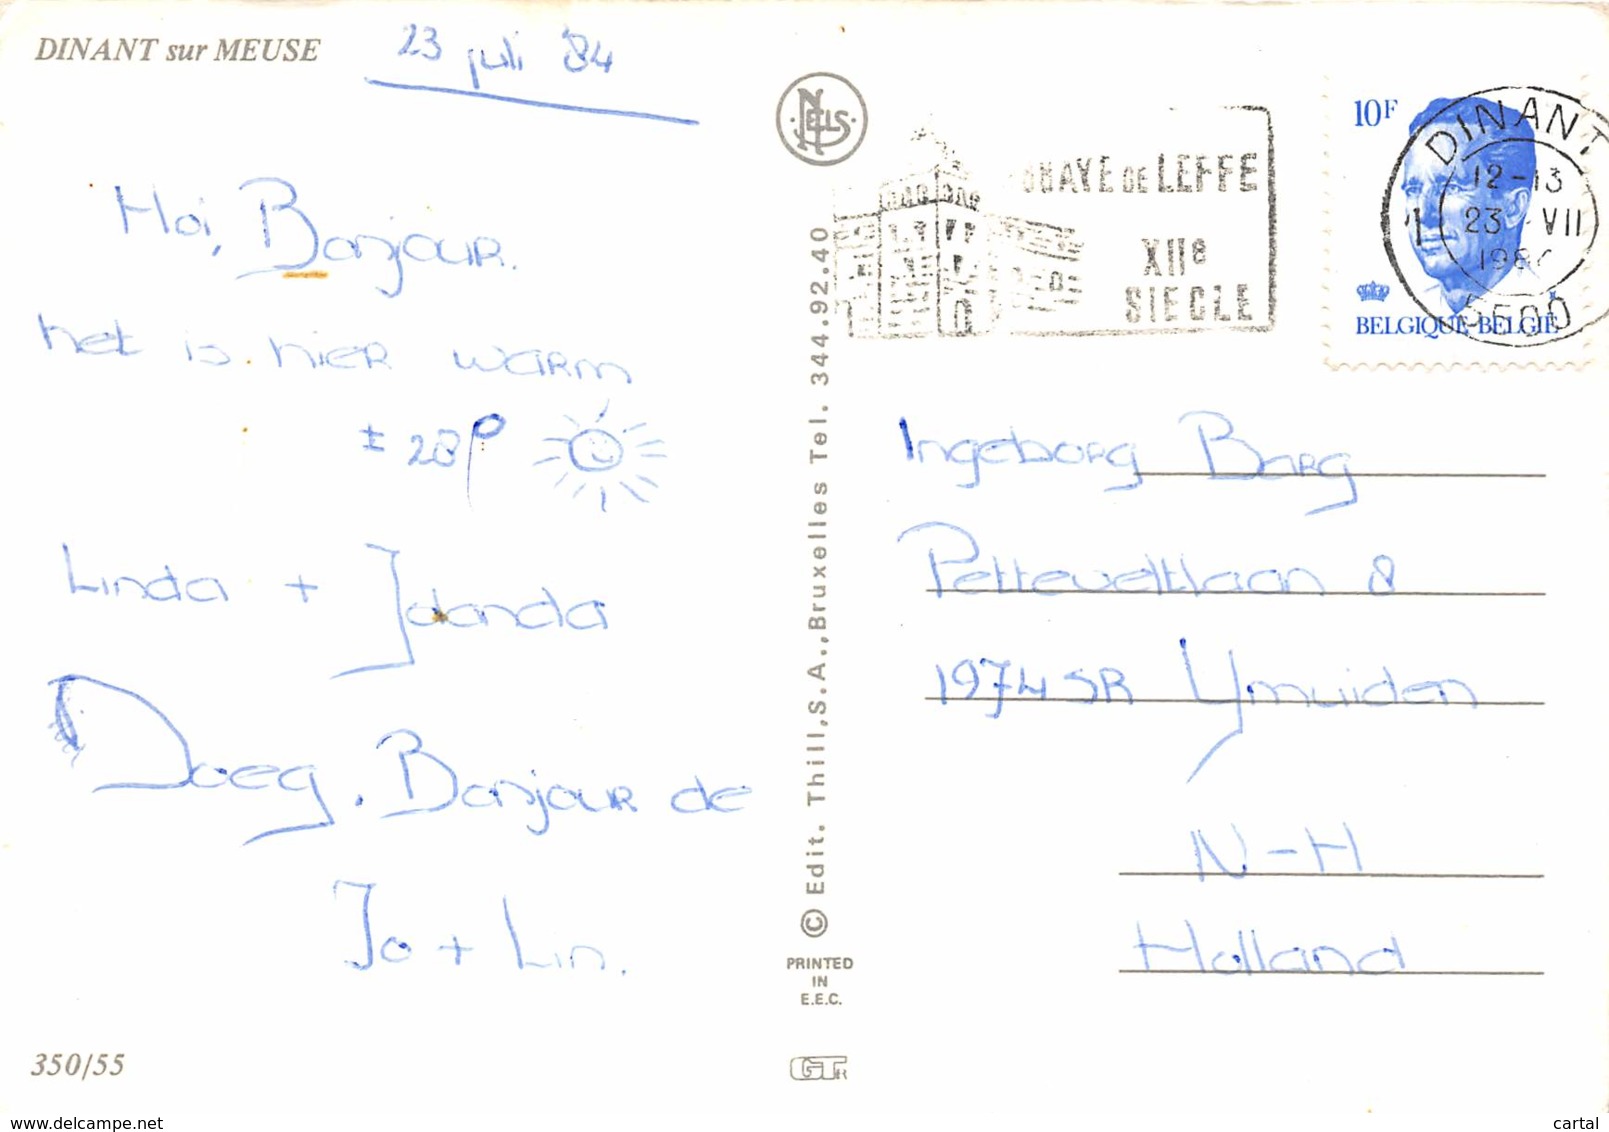 DINANT sur MEUSE
23 juli '84
Hoi, Bonjour.
het is hier warm
± 28°
Linda + Jolanda
Doeg. Bonjour de
Jo + Lin.
350/55
NELS
© Edit. Thill,S.A.,Bruxelles Tel. 344.92.40
PRINTED
IN
E.E.C.
DE LEFFE
XIIe
SIECLE
10F
BELGIQUE-BELGIË
DINANT
12-13
23 VII
1
Ingeborg Barg
Petteveltlaan 8
1974 SR Ymuiden
N-H
Holland
https://www.delcampe.net
cartal